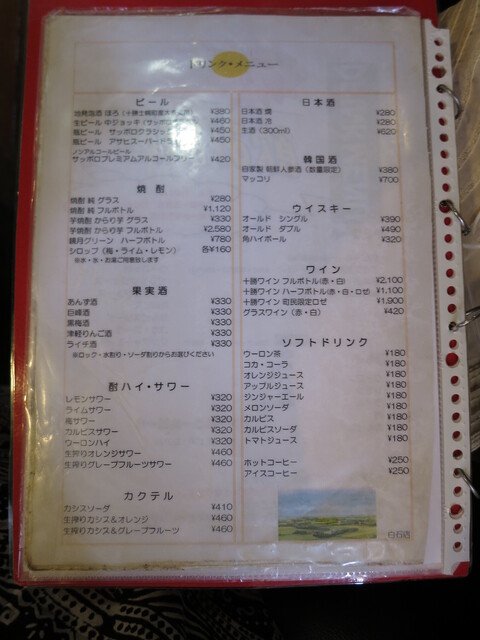 ドリンク・メニュー
ビール
地発泡酒 ほろ (十勝士幌町産大麦 ¥380
生ビール 中ジョッキ (サッポロ ¥460
瓶ビール サッポロクラシック ¥450
瓶ビール アサヒスーパードライ ¥450
ノンアルコールビール
サッポロプレミアムアルコールフリー ¥420
焼酎
焼酎 純 グラス ¥280
焼酎 純 フルボトル ¥1,120
芋焼酎 からり芋 グラス ¥330
芋焼酎 からり芋 フルボトル ¥2,580
鏡月グリーン ハーフボトル ¥780
シロップ (梅・ライム・レモン) 各¥160
※氷・水・お湯ご用意致します
果実酒
あんず酒 ¥330
巨峰酒 ¥330
黒梅酒 ¥330
津軽りんご酒 ¥330
ライチ酒 ¥330
※ロック・水割り・ソーダ割りからお選びください
酎ハイ・サワー
レモンサワー ¥320
ライムサワー ¥320
梅サワー ¥320
カルピスサワー ¥320
ウーロンハイ ¥320
生搾りオレンジサワー ¥460
生搾りグレープフルーツサワー ¥460
カクテル
カシスソーダ ¥410
生搾りカシス＆オレンジ ¥460
生搾りカシス＆グレープフルーツ ¥460
日本酒
日本酒 燗 ¥280
日本酒 冷 ¥280
生酒 (300ml) ¥620
韓国酒
自家製 朝鮮人参酒 (数量限定) ¥380
マッコリ ¥700
ウイスキー
オールド シングル ¥390
オールド ダブル ¥490
角ハイボール ¥320
ワイン
十勝ワイン フルボトル (赤・白) ¥2,100
十勝ワイン ハーフボトル (赤・白・ロゼ) ¥1,100
十勝ワイン 町民限定ロゼ ¥1,900
グラスワイン (赤・白) ¥420
ソフトドリンク
ウーロン茶 ¥180
コカ・コーラ ¥180
オレンジジュース ¥180
アップルジュース ¥180
ジンジャーエール ¥180
メロンソーダ ¥180
カルピス ¥180
カルピスソーダ ¥180
トマトジュース ¥180
ホットコーヒー ¥250
アイスコーヒー ¥250